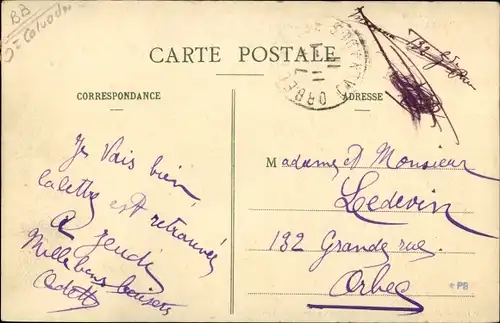 BB
D= Calvados
CARTE POSTALE
ORBEC
CALVADOS
CORRESPONDANCE
ADRESSE
132 Gde rue
Je Vais bien,
la lettre est retrouvée
A jeudi
Mille bons baisers
Odette
Madame et Monsieur
Ledevin
132 Grande rue.
Orbec
PB